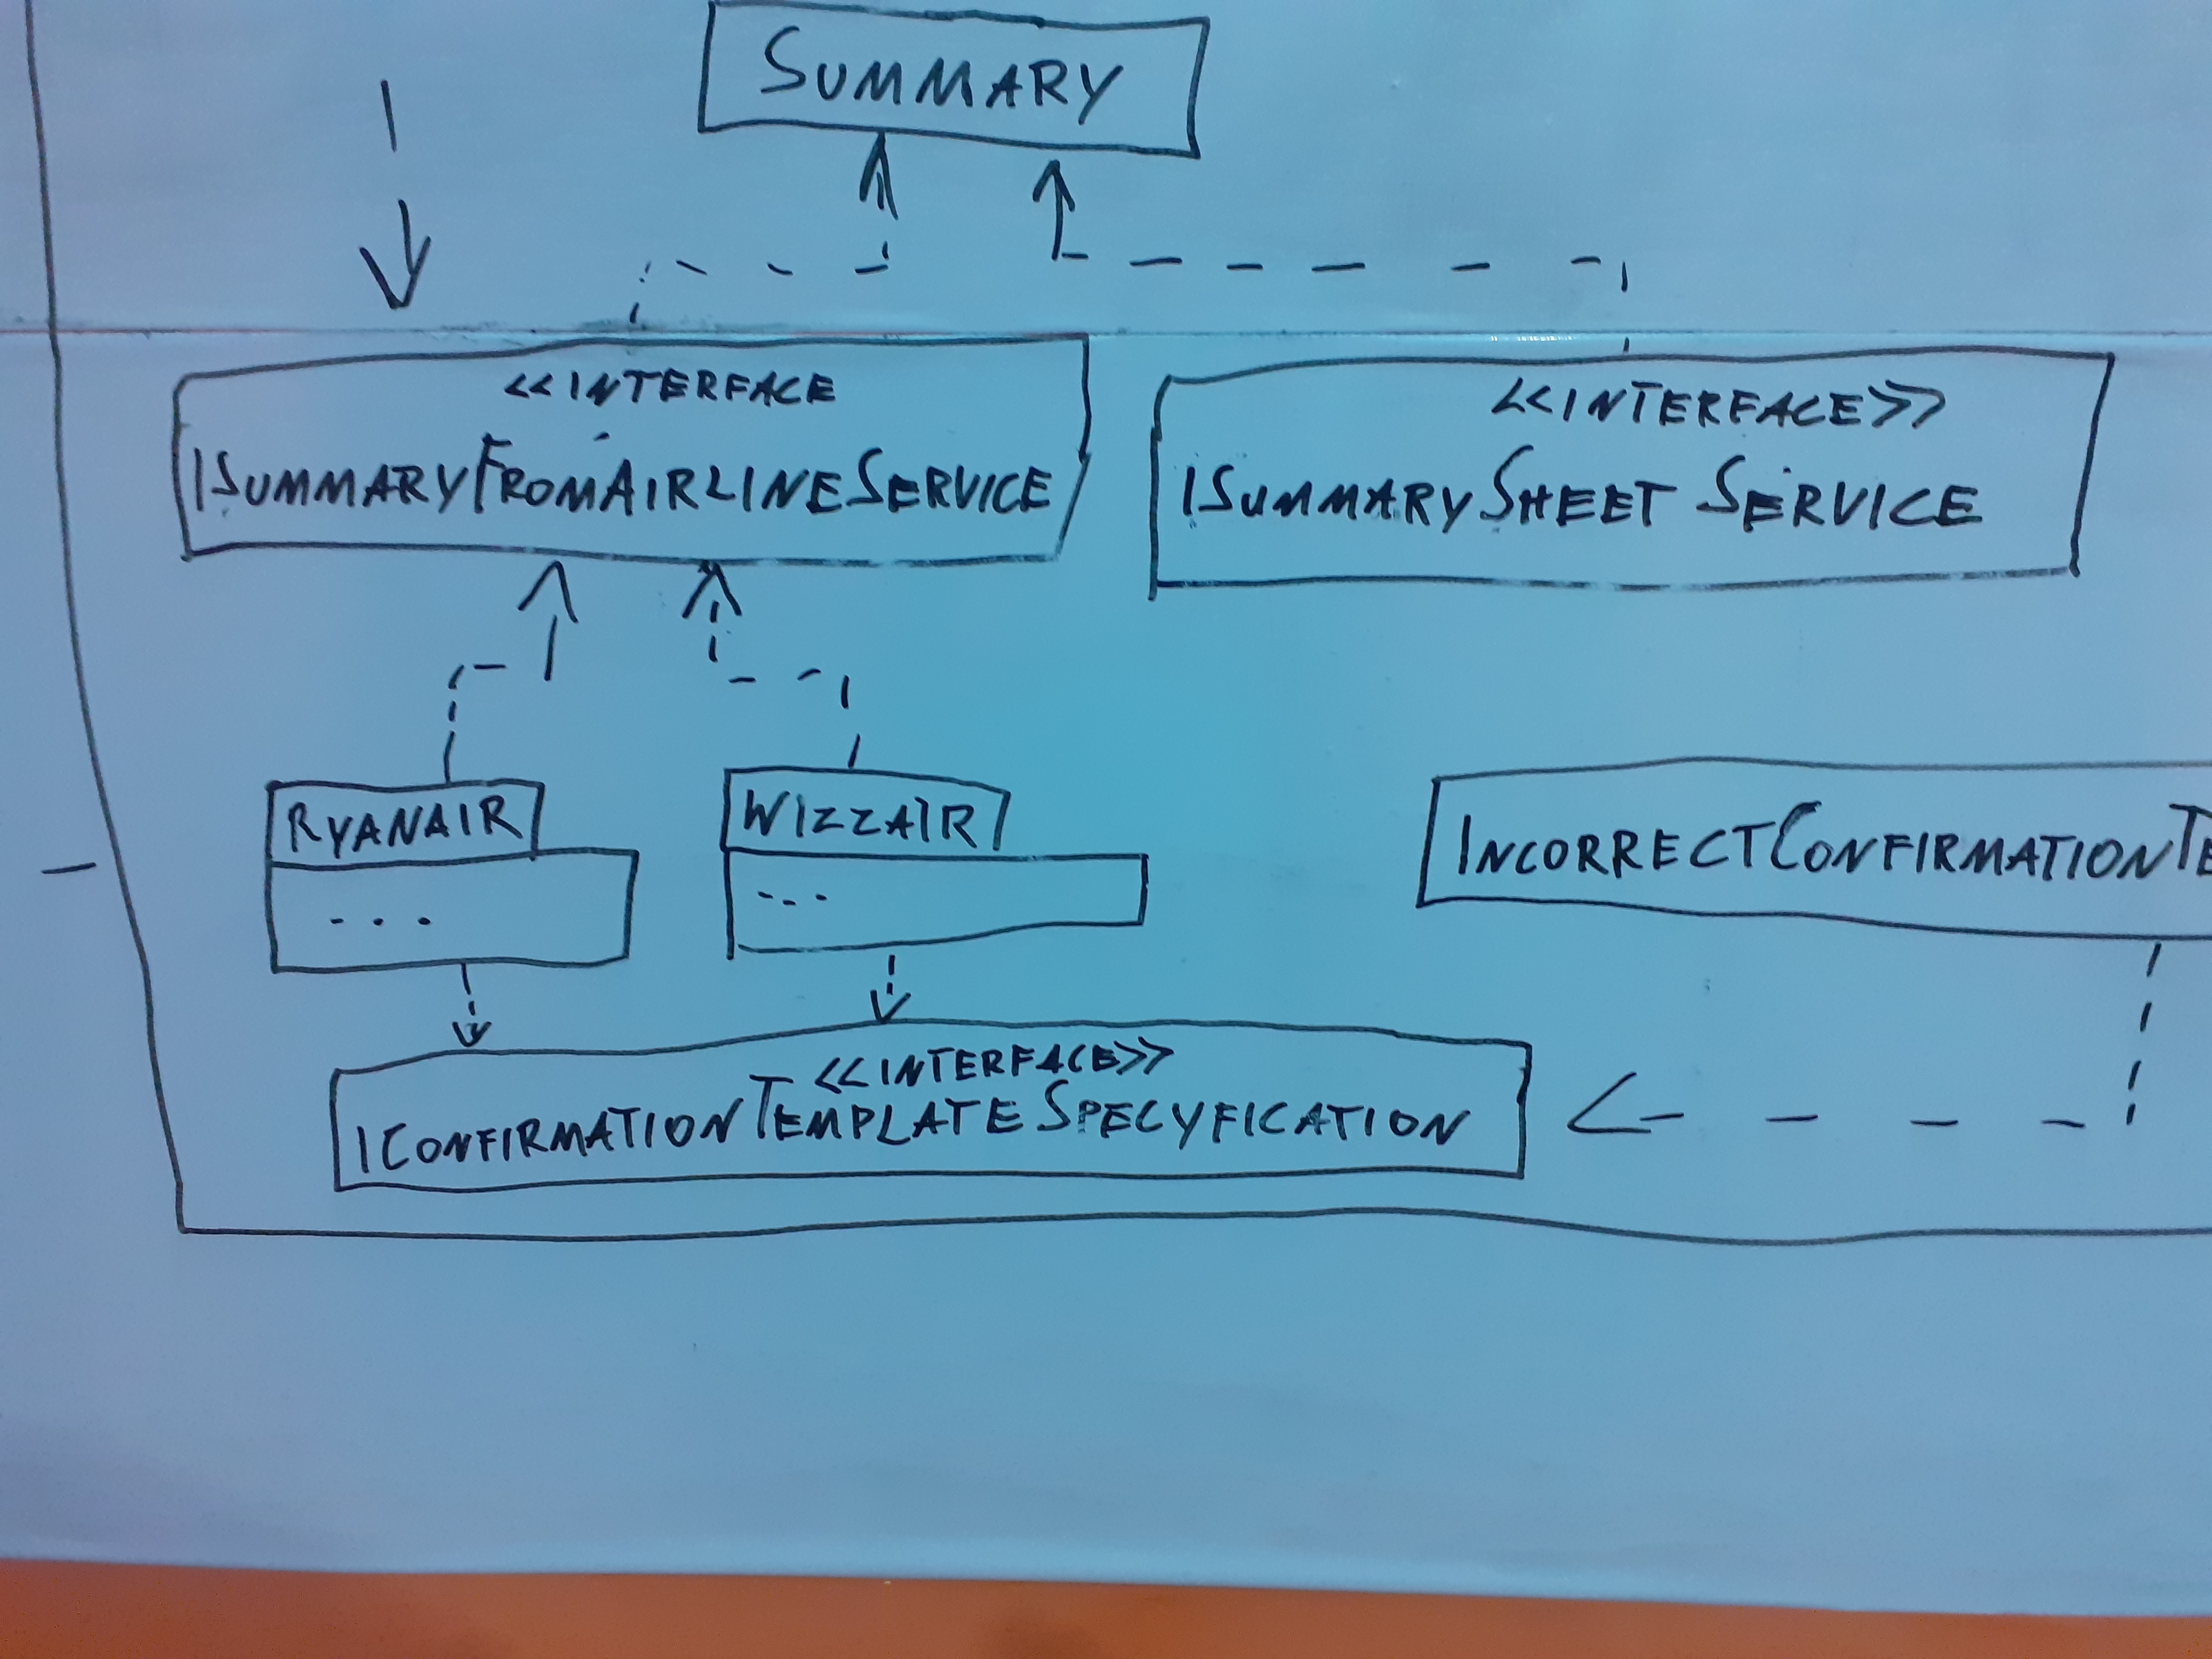 SUMMARY
<<INTERFACE
ISUMMARYFROMAIRLINESERVICE
<<INTERFACE>>
ISUMMARYSHEET SERVICE
RYANAIR
...
WIZZAIR
...
INCORRECTCONFIRMATIONTE
<<INTERFACE>>
ICONFIRMATIONTEMPLATESPECYFICATION